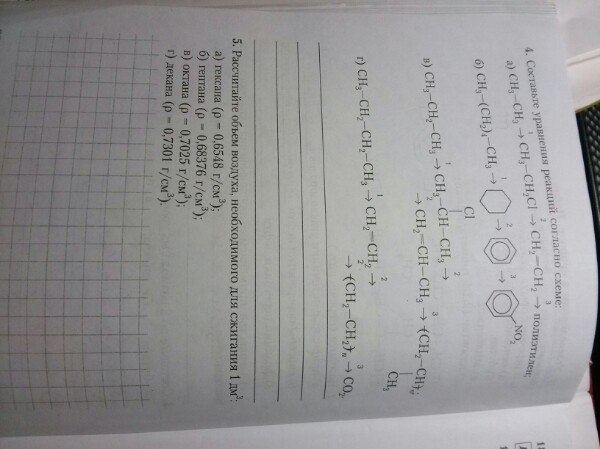 4. Составьте уравнения реакций согласно схеме:
а) CH₃—CH₃ →¹ CH₃—CH₂Cl →² CH₂=CH₂ →³ полиэтилен;
б) CH₃—(CH₂)₄—CH₃ →¹ →² →³ NO₂
Cl
в) CH₃—CH₂—CH₃ →¹ CH₃—CH—CH₃ →²
→² CH₂=CH—CH₃ →³ (CH₂—CH)ₙ
CH₃
г) CH₃—CH₂—CH₂—CH₃ →¹ CH₂=CH₂ →²
→² (CH₂—CH₂)ₙ →³ CO₂.
5. Рассчитайте объем воздуха, необходимого для сжигания 1 дм³:
а) гексана (ρ = 0,6548 г/см³);
б) гептана (ρ = 0,68376 г/см³);
в) октана (ρ = 0,7025 г/см³);
г) декана (ρ = 0,7301 г/см³).